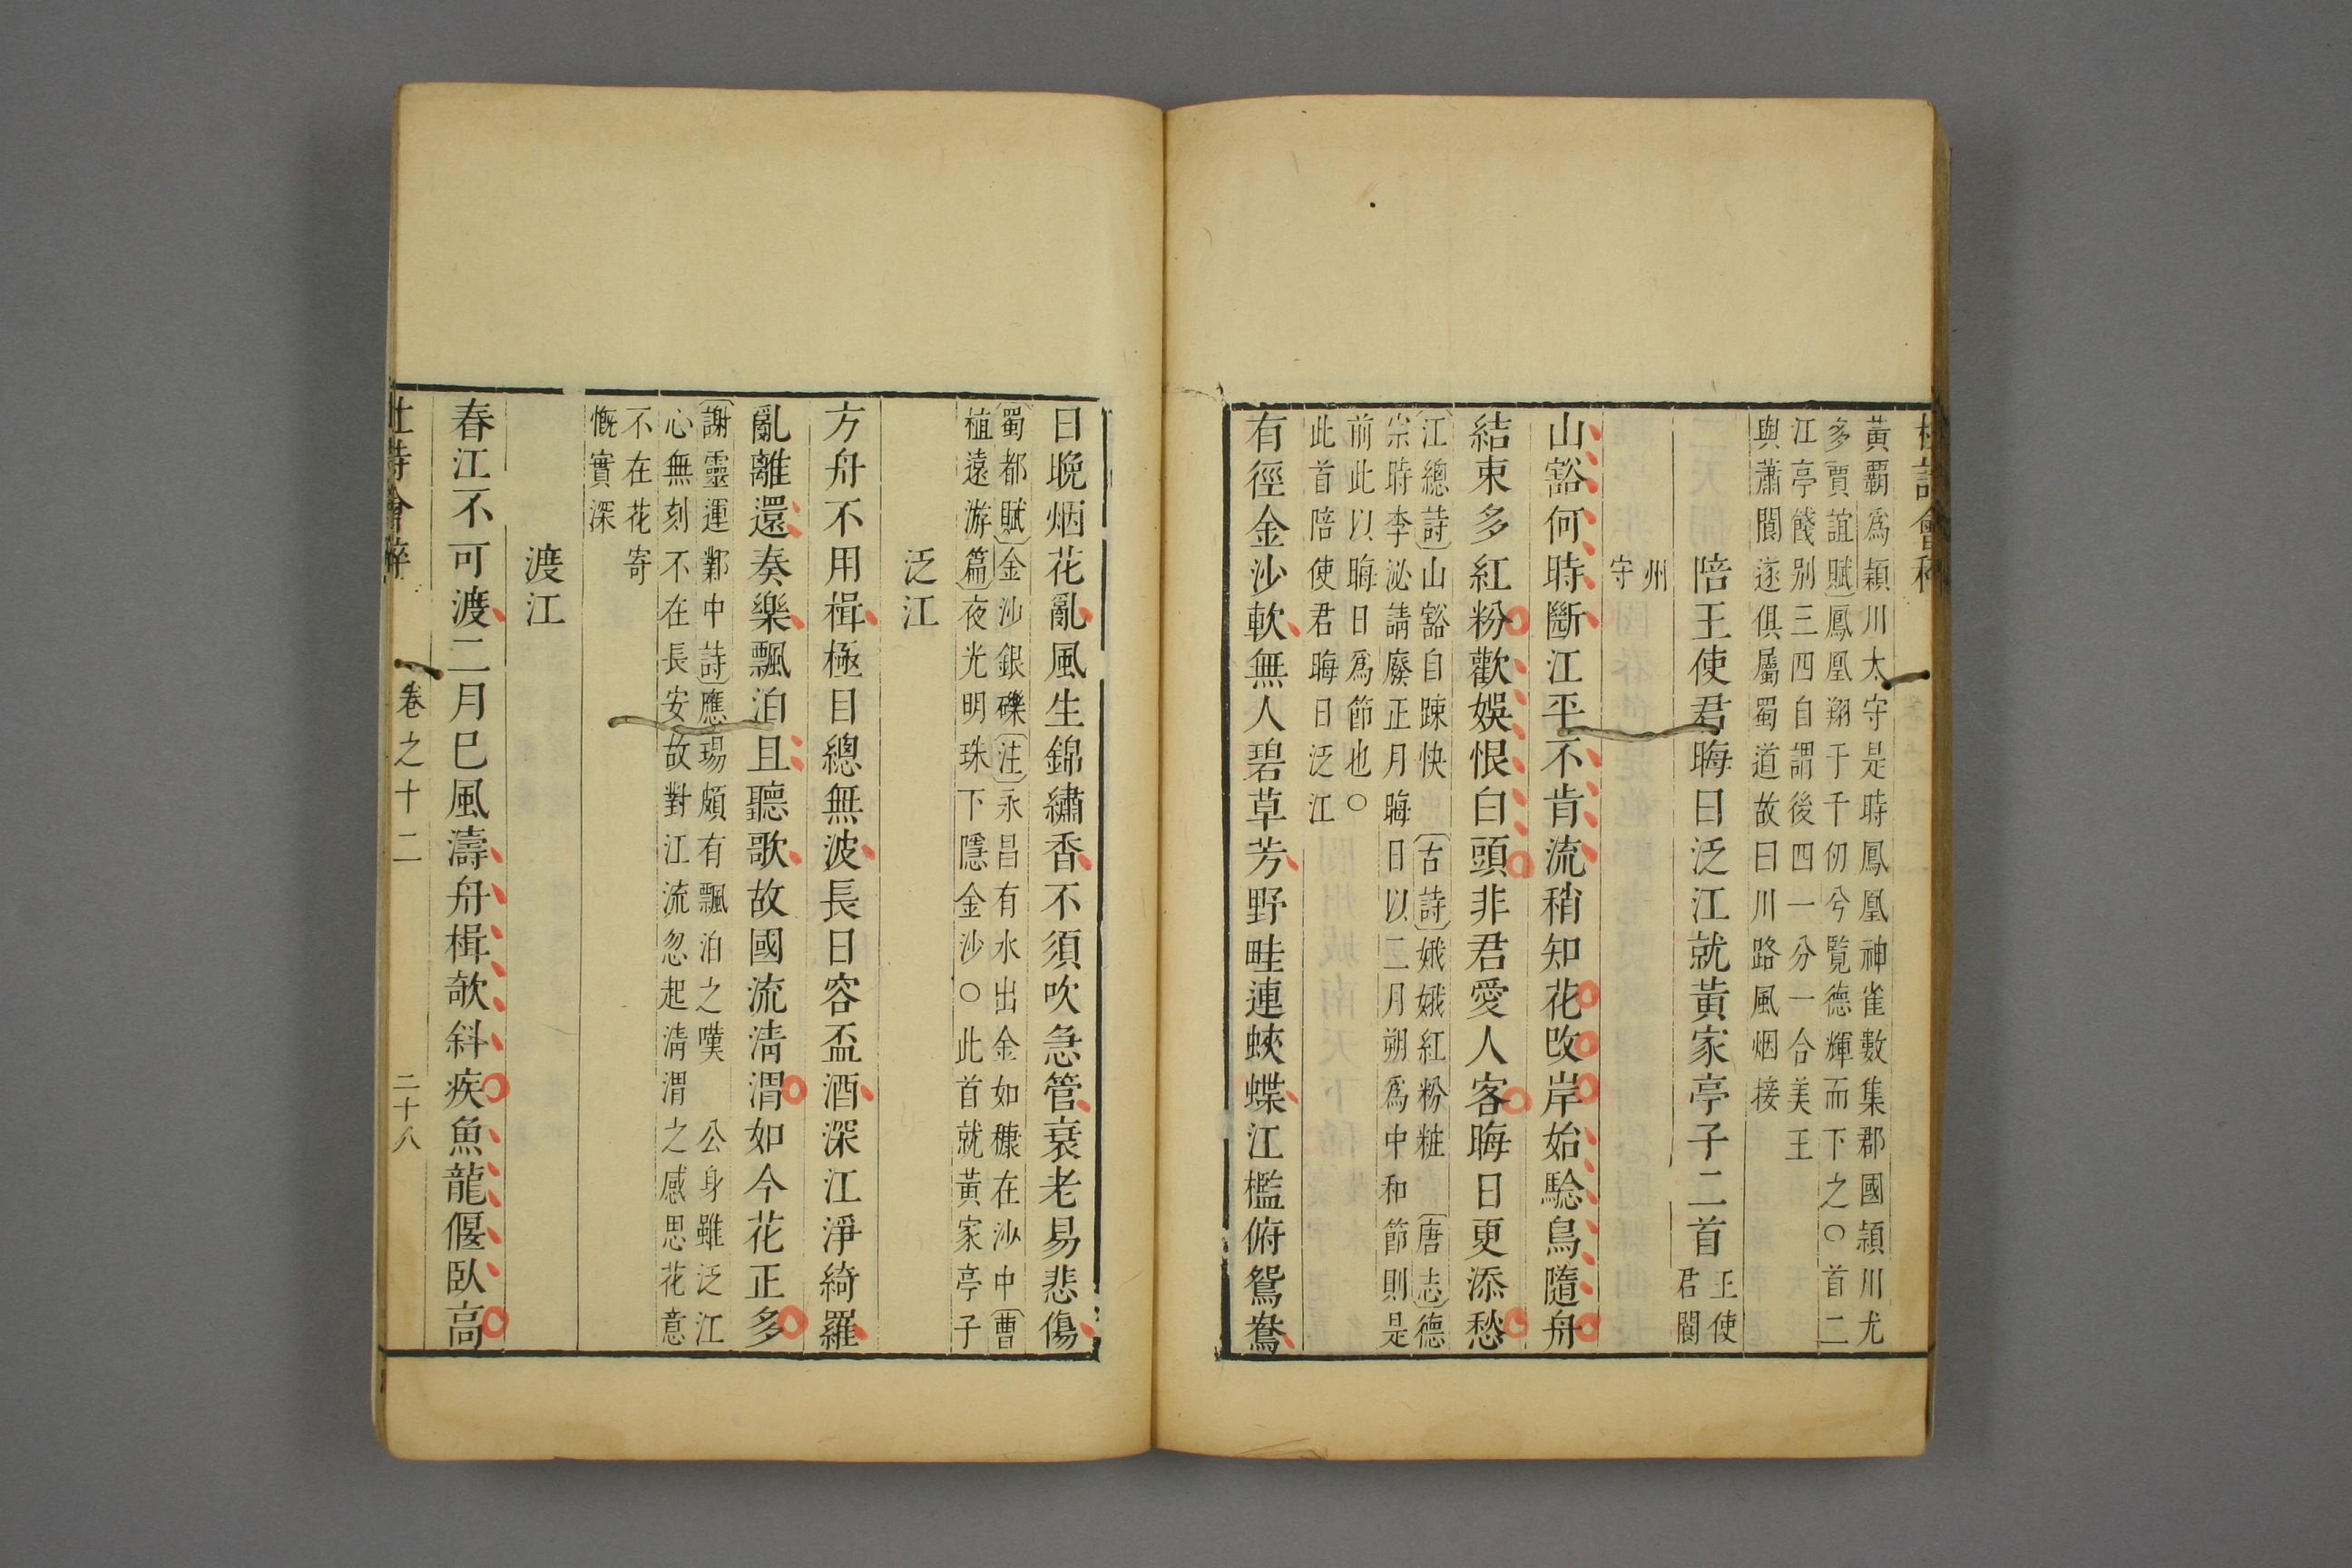 黃霸爲潁川太守是時鳳凰神雀數集郡國潁川尤
多〔賈誼賦〕鳳凰翔于千仞兮覽德輝而下之○首二
江亭餞别三四自謂後四一分一合美王
與蕭閬遂俱屬蜀道故曰川路風烟接
陪王使君晦日泛江就黃家亭子二首
王使
君閬
州
守
山豁何時斷江平不肯流稍知花改岸始驗鳥隨舟
結束多紅粉歡娛恨白頭非君愛人客晦日更添愁
〔江總詩〕山豁自踈快〔古詩〕娥娥紅粉粧〔唐志〕德
宗時李泌請廢正月晦日以二月朔爲中和節則是
前此以晦日爲節也○
此首陪使君晦日泛江
有徑金沙軟無人碧草芳野畦連蛺蝶江檻俯鴛鴦
日晚烟花亂風生錦繡香不須吹急管衰老易悲傷
〔蜀都賦〕金沙銀礫〔注〕永昌有水出金如糠在沙中〔曹
植遠游篇〕夜光明珠下隱金沙○此首就黃家亭子
泛江
方舟不用楫極目總無波長日容盃酒深江淨綺羅
亂離還奏樂飄泊且聽歌故國流淸渭如今花正多
〔謝靈運鄴中詩〕應瑒頗有飄泊之嘆　公身雖泛江
心無刻不在長安故對江流忽起淸渭之感思花意
不在花寄
慨實深
渡江
春江不可渡二月巳風濤舟楫欹斜疾魚龍偃臥高
杜詩會稡
卷之十二
二十八